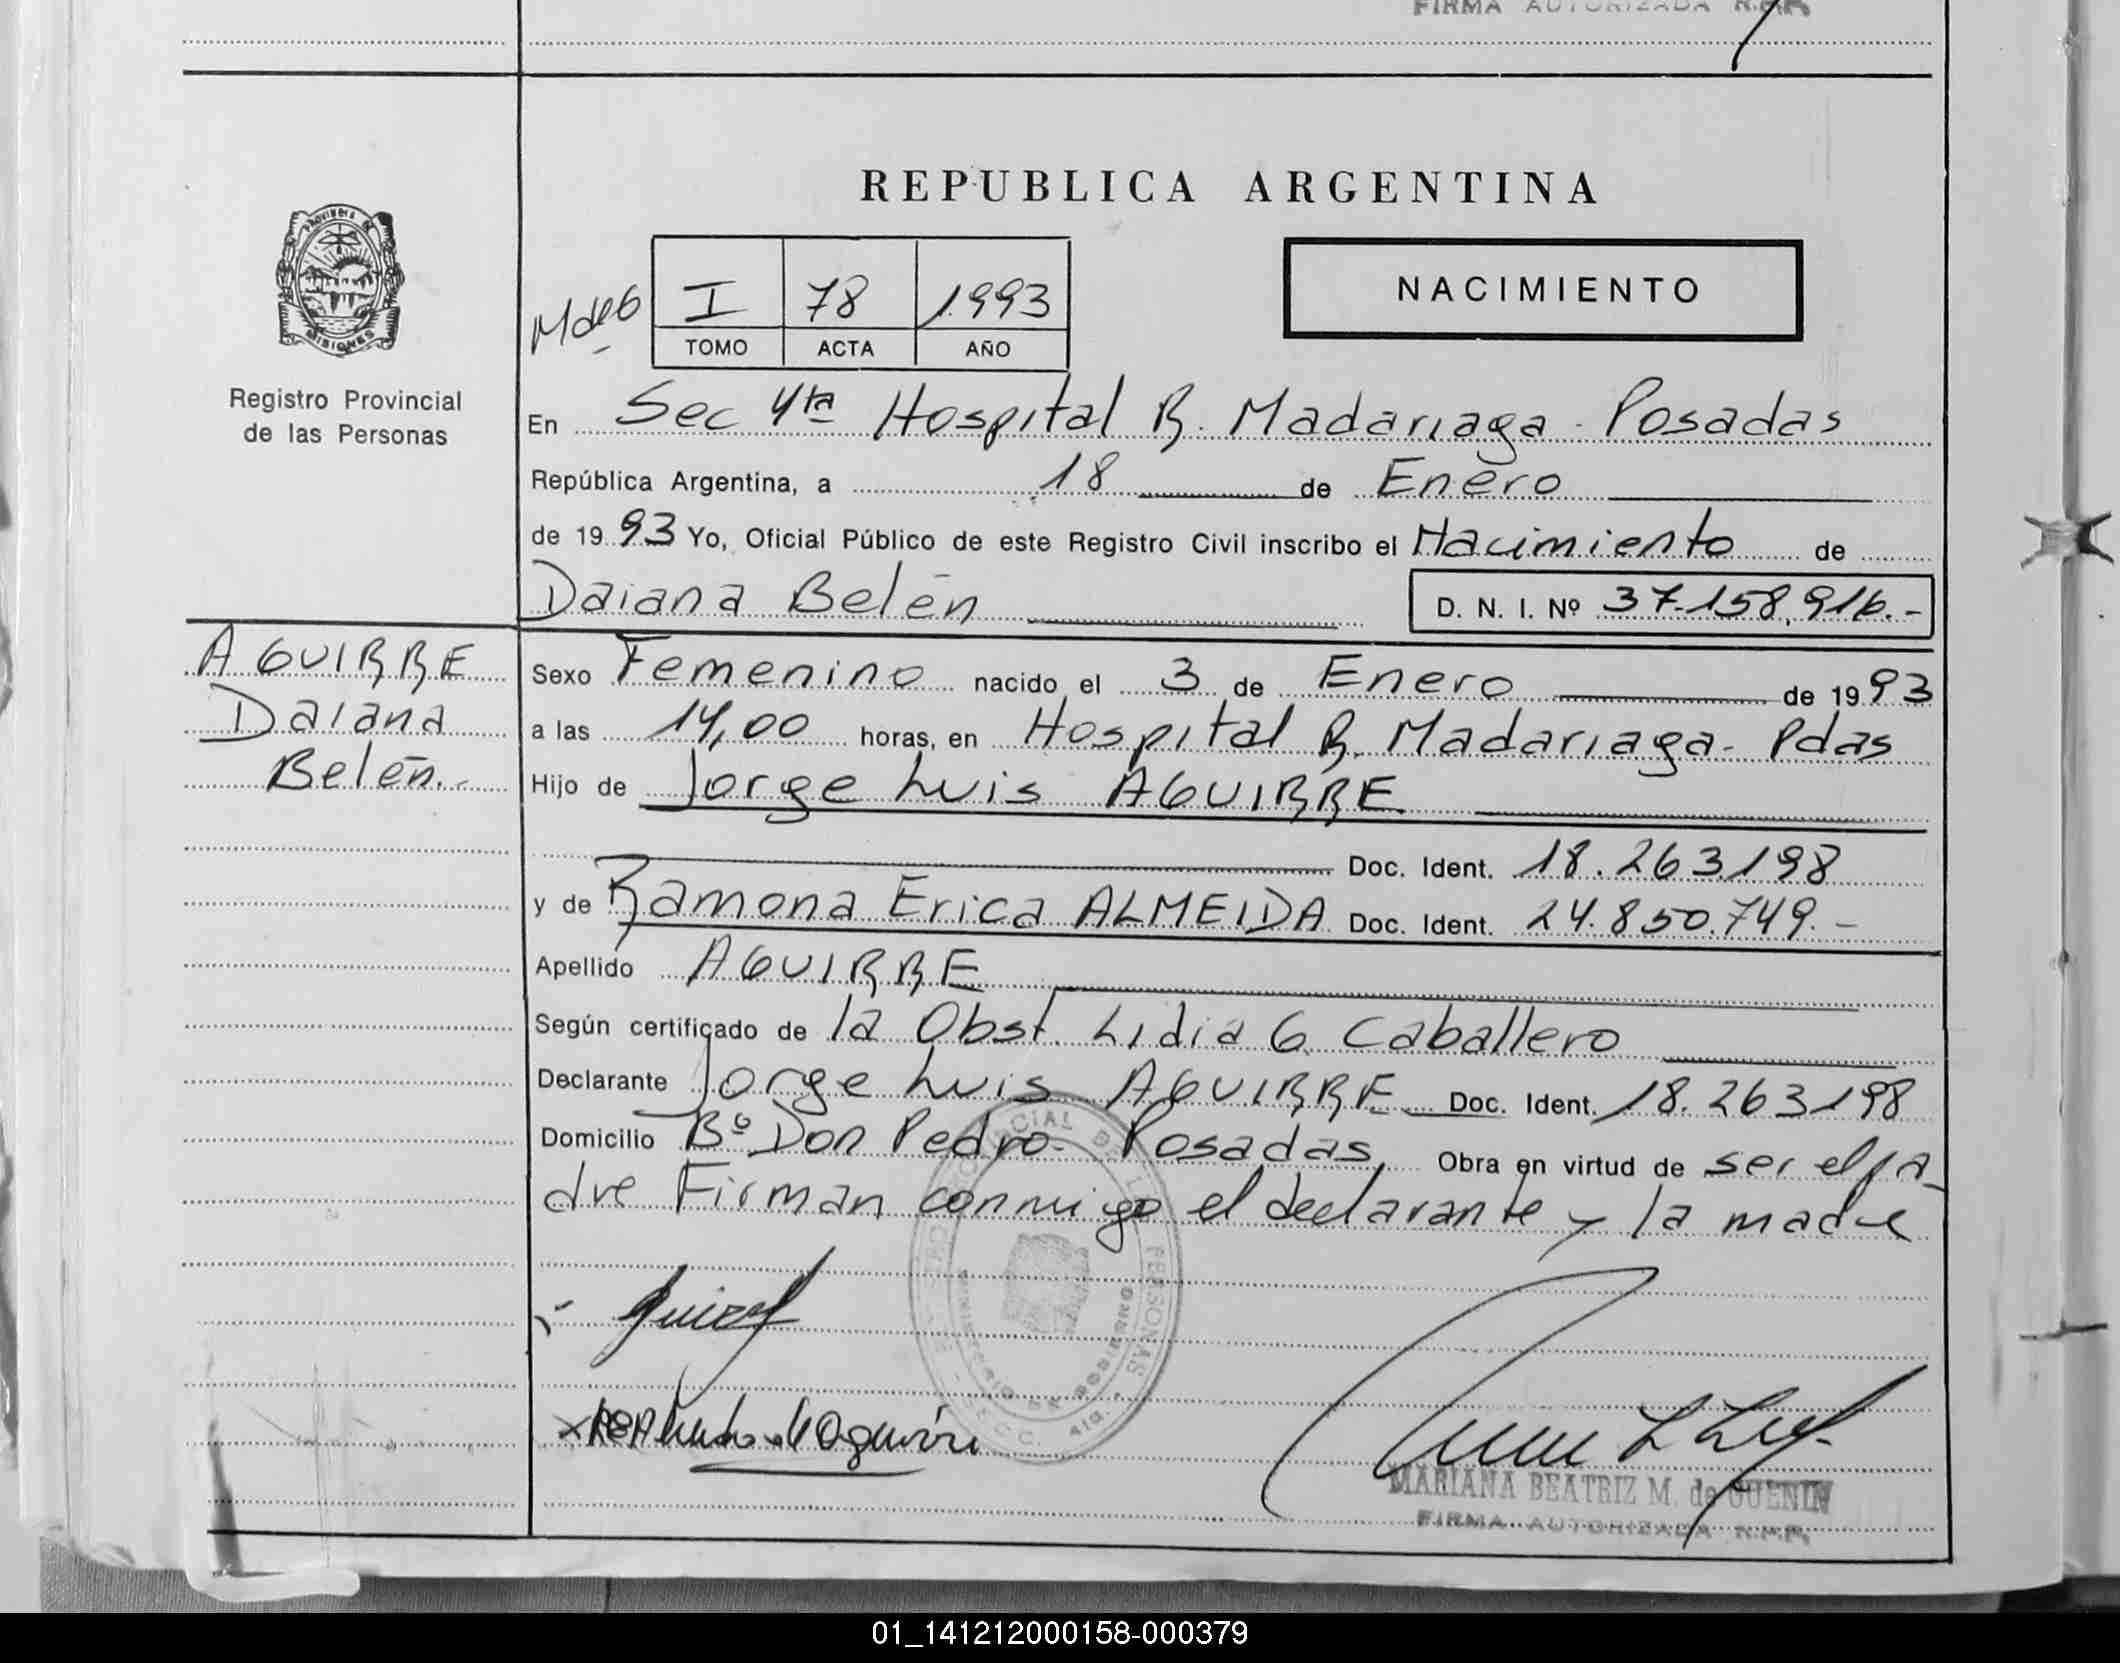 FIRMA AUTORIZADA R.P.P.
REPUBLICA ARGENTINA
PROVINCIA DE
MISIONES
Registro Provincial
de las Personas
I 78 1993
TOMO ACTA AÑO
NACIMIENTO
En Sec 4ta Hospital R. Madariaga - Posadas
República Argentina, a 18 de Enero
de 1993 Yo, Oficial Público de este Registro Civil inscribo el Nacimiento de
Daiana Belén D. N. I. Nº 37.158.916.-
AGUIRRE
Daiana
Belén.-
Sexo Femenino nacido el 3 de Enero de 1993
a las 14,00 horas, en Hospital R. Madariaga - Pdas
Hijo de Jorge Luis AGUIRRE
Doc. Ident. 18.263.198
y de Ramona Erica ALMEIDA Doc. Ident. 24.850.749.-
Apellido AGUIRRE
Según certificado de la Obst. Lidia G. Caballero
Declarante Jorge Luis AGUIRRE Doc. Ident. 18.263.198
Domicilio Bº Don Pedro - Posadas, Obra en virtud de ser el pa-
dre Firman conmigo el declarante y la madre
MARIANA BEATRIZ M. de GUENIN
FIRMA AUTORIZADA R.P.P.
01_141212000158-000379